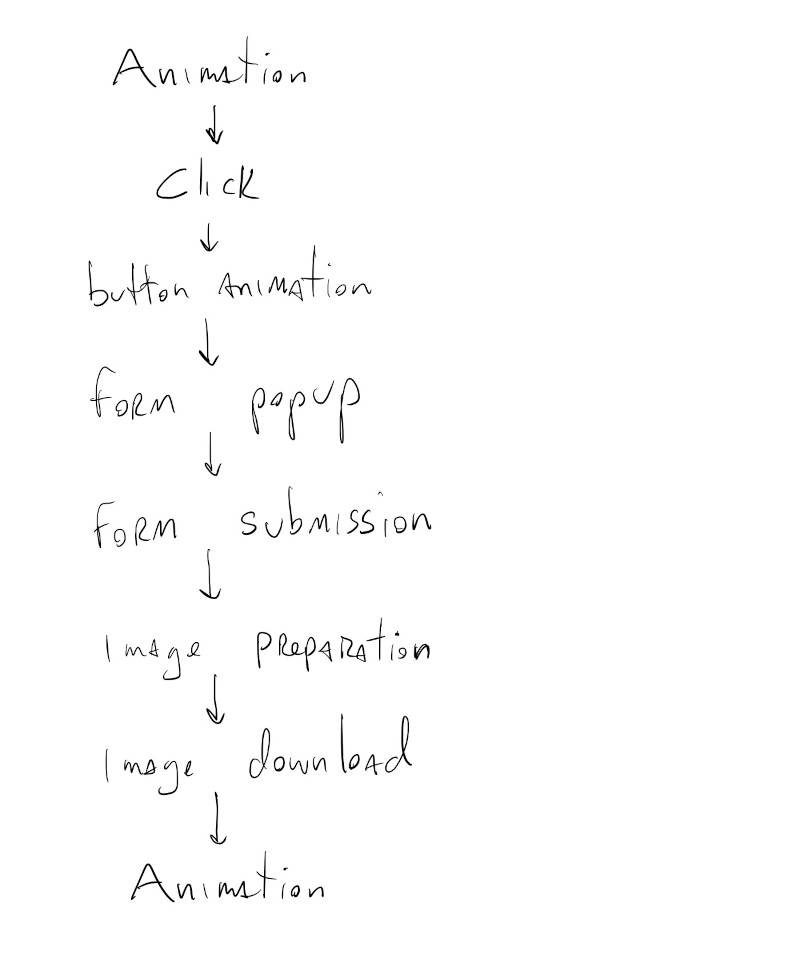 Animation
Click
button Animation
form popup
form submission
Image preparation
Image download
Animation